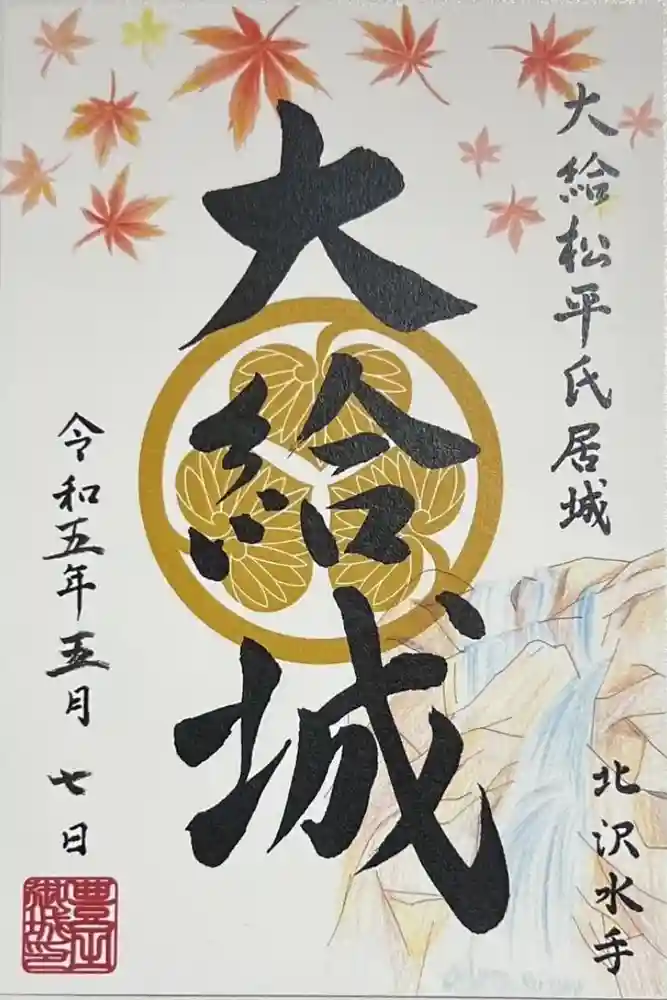 大給松平氏居城
大給城
北沢水手
令和五年五月七日